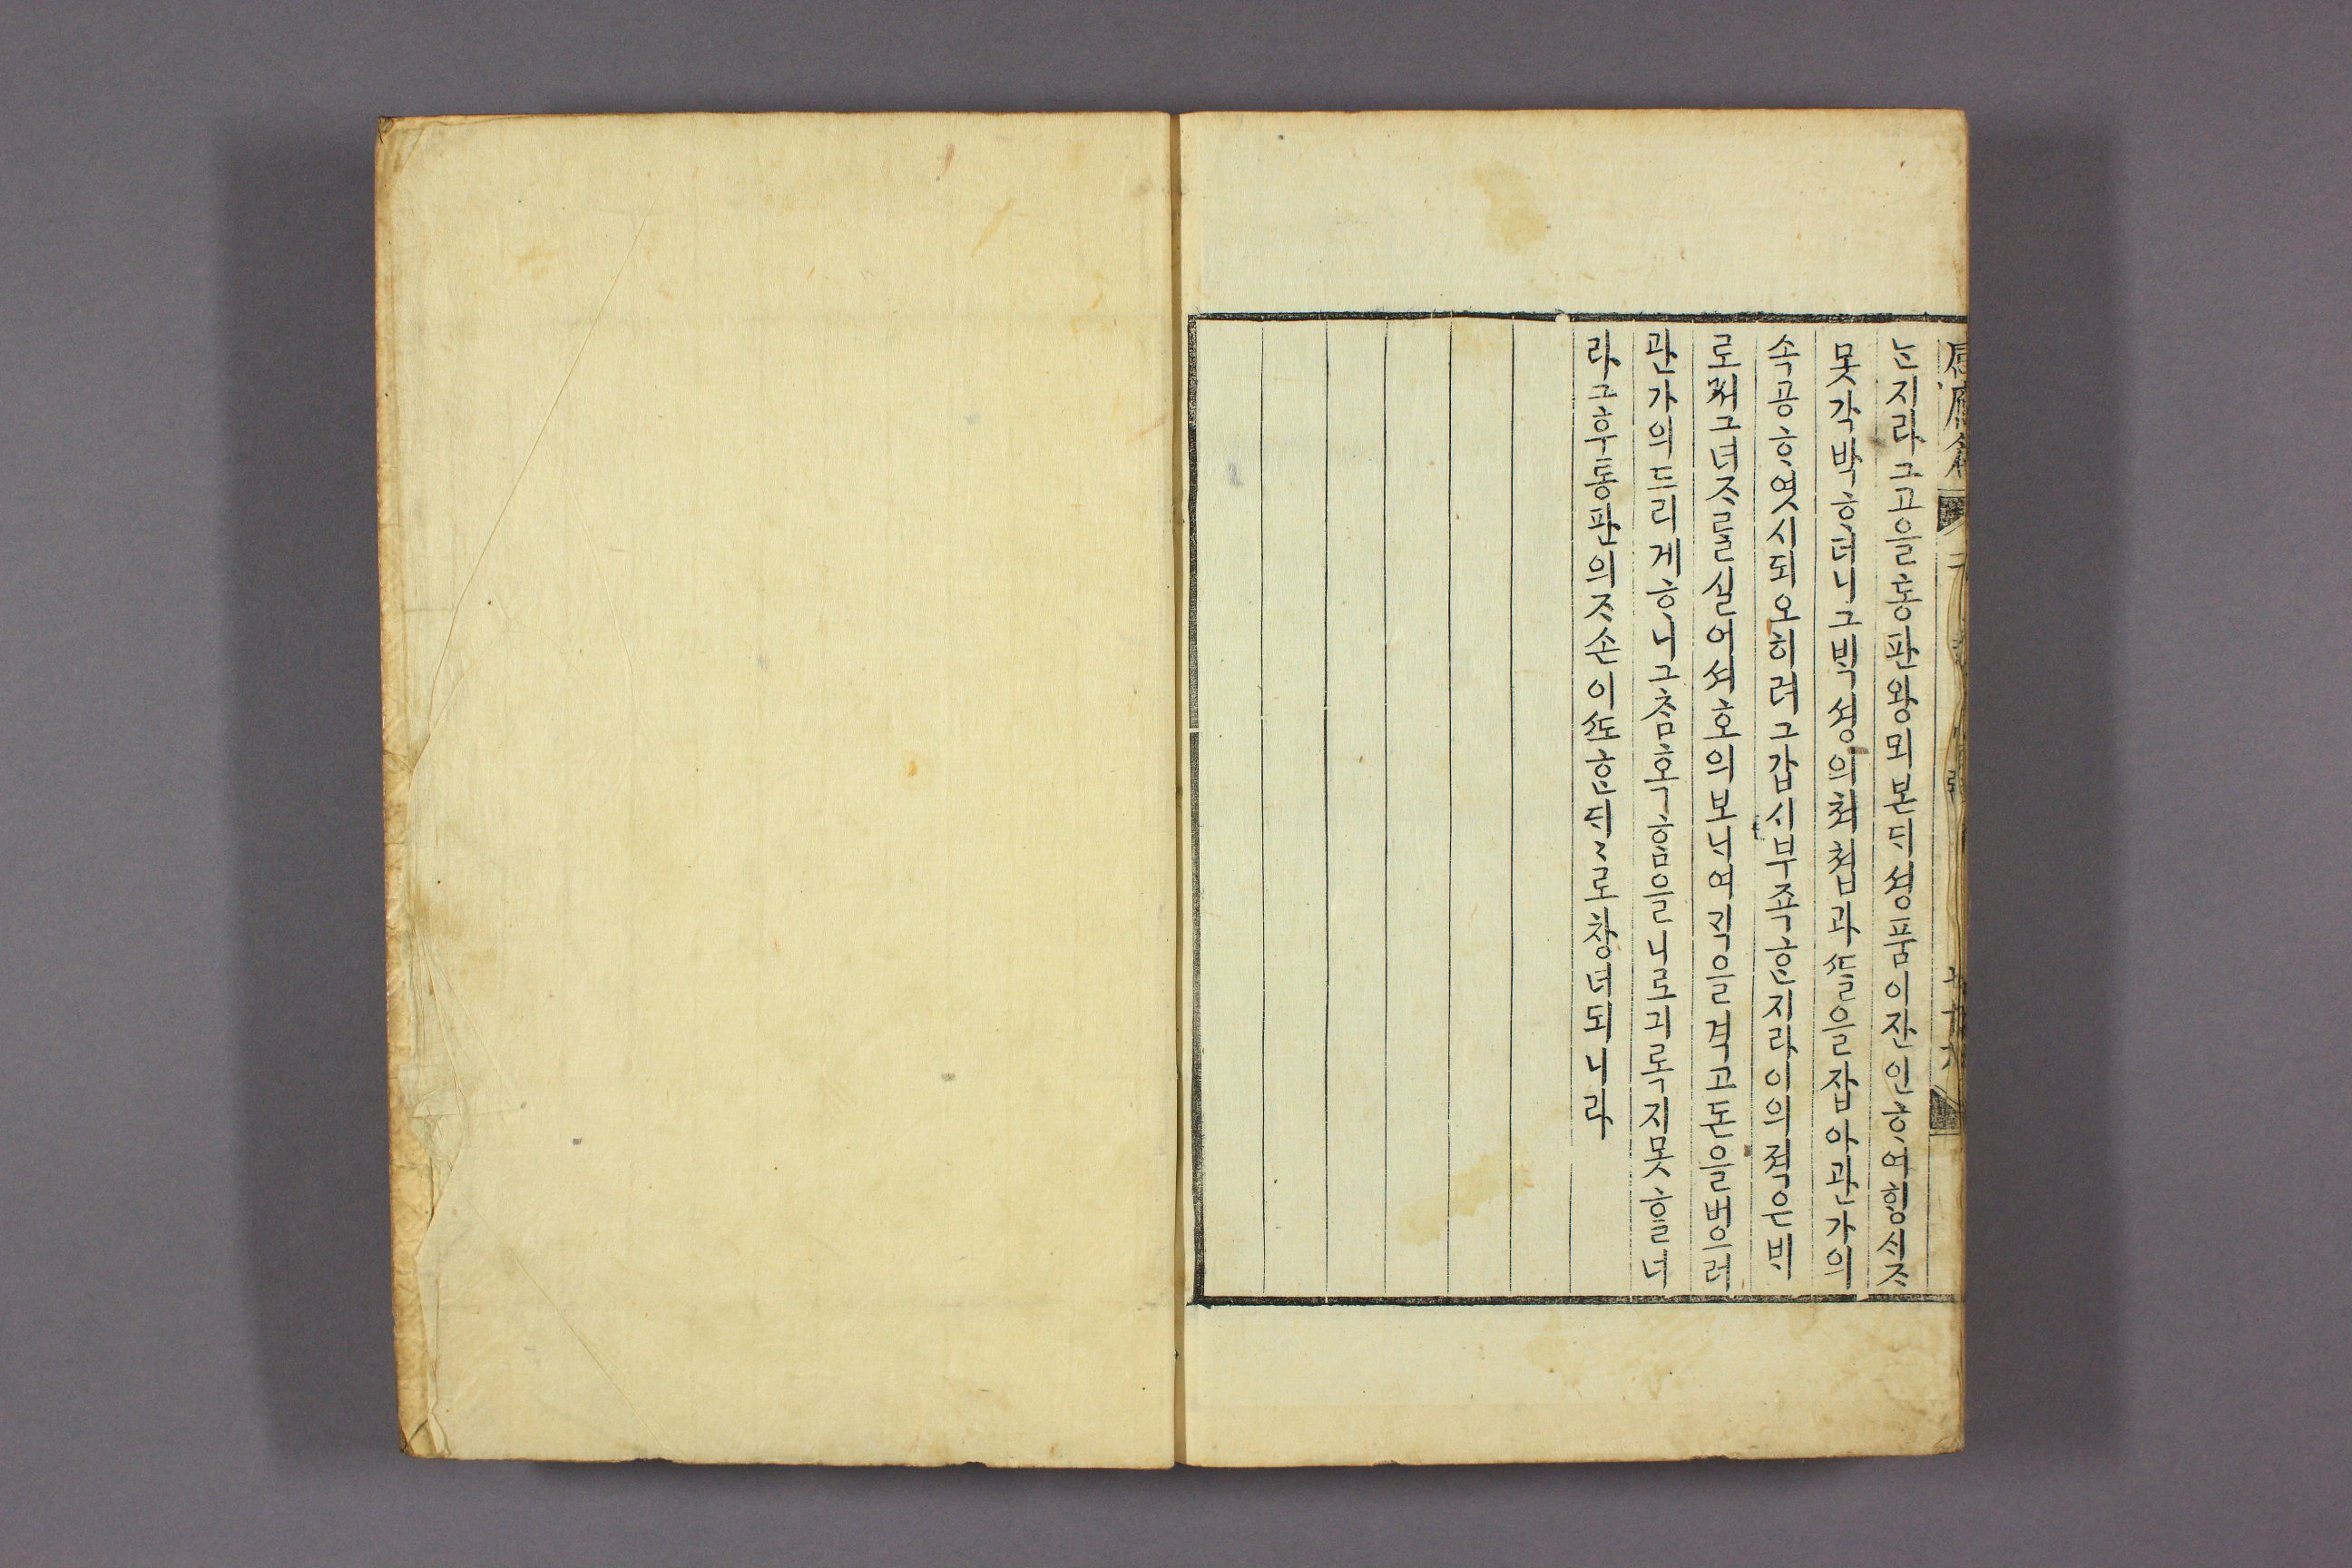 感應篇
는지라그고을동판왕뫼본ᄃᆡ셩품이잔인ᄒᆞ여ᄒᆡᆼ시ᄌᆞ
못각박ᄒᆞ더니그ᄇᆡᆨ셩의쳐쳡과ᄯᆞᆯ을잡아관가의
속공ᄒᆞ엿시되오히려그갑시부죡ᄒᆞᆫ지라이의젹은ᄇᆡ
로ᄡᅥ그녀ᄌᆞ를실어셔호의보ᄂᆡ여ᄀᆡᆨ을겪고돈을밧으려
관가의드리게ᄒᆞ니그참혹ᄒᆞᆷ을니로긔록지못ᄒᆞᆯ너
라그후동판의ᄌᆞ손이ᄯᅩᄒᆞᆫᄃᆡᄃᆡ로창녀되니라